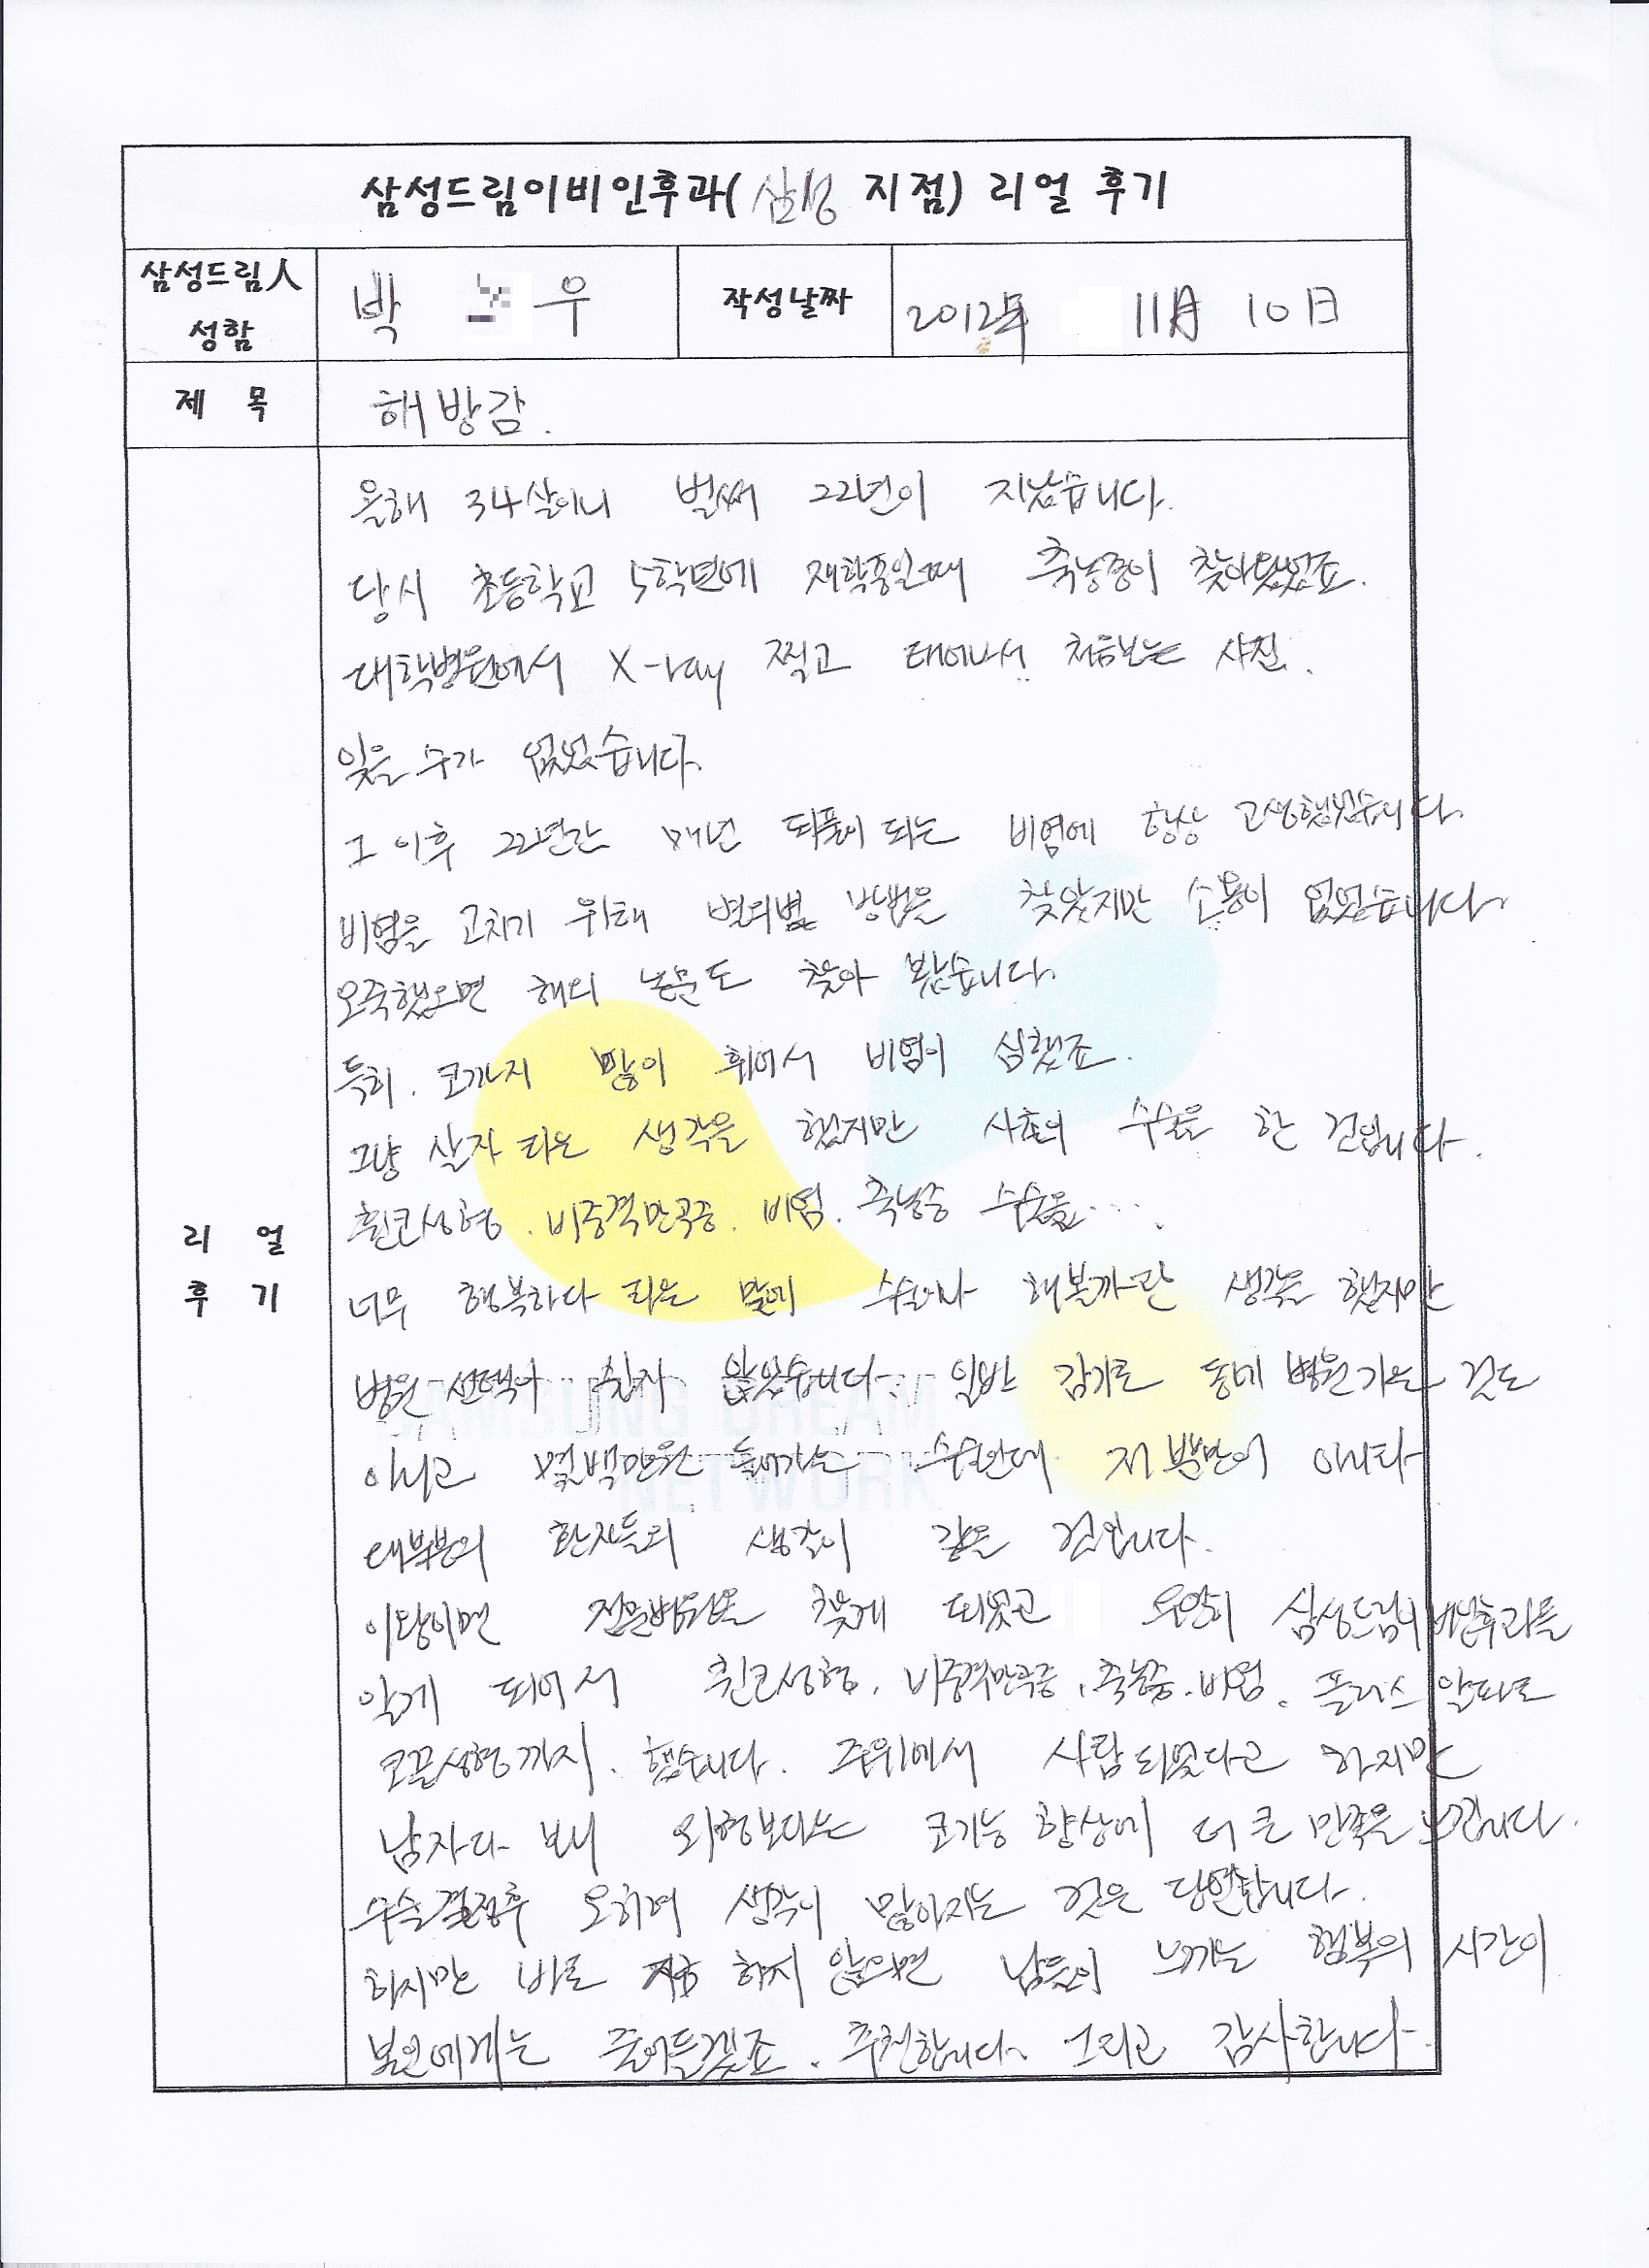 삼성드림이비인후과(삼성 지점) 리얼 후기
삼성드림人
성함
박 우
작성날짜
2012年 11月 10日
제 목
해방감.
리 얼
후 기
올해 34살이니 벌써 22년이 지났습니다.
당시 초등학교 5학년에 재학중일때 축농증이 찾아왔었죠.
대학병원에서 X-ray 찍고 태어나서 처음보는 사진.
잊을 수가 없었습니다.
그 이후 22년간 매년 되풀이 되는 비염에 항상 고생했었습니다.
비염을 고치기 위해 별의별 방법을 찾았지만 소용이 없었습니다.
오죽했으면 해외 논문도 찾아 봤습니다.
특히. 코까지 많이 휘어서 비염이 심했죠.
그냥 살자 라는 생각을 했지만 사촌이 수술을 한 겁입니다.
휜코성형. 비중격만곡증. 비염. 축농증 수술을....
너무 행복하다 라는 말에 수술이나 해볼까란 생각을 했지만
병원 선택이 쉽지 않았습니다. 일반 감기로 동네 병원가는 것도
아니고 몇백만원 들어가는 수술인데 저 뿐만이 아니라
대부분의 환자들의 생각이 같을 것입니다.
이왕이면 전문병원을 찾게 되었고 우연히 삼성드림이비인후과를
알게 되어서 휜코성형. 비중격만곡증. 축농증. 비염. 플러스 알파로
코끝성형까지. 했습니다. 주위에서 사람되었다고 하지만
남자다 보니 외형보다는 코기능 향상에 더 큰 만족을 느낍니다.
수술결정후 오히려 생각이 많아지는 것은 당연합니다.
하지만 바로 지금 하지 않으면 남들이 느끼는 행복의 시간이
본인에게는 줄어들겠죠. 추천합니다. 그리고 감사합니다.
SAMSUNG DREAM
NETWORK